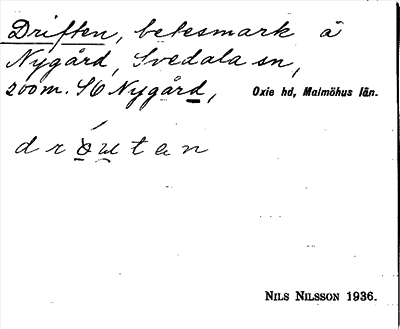 Driften, betesmark å
Nygård, Svedala sn,
200m. SO Nygård, Oxie hd, Malmöhus län.
NILS NILSSON 1936.